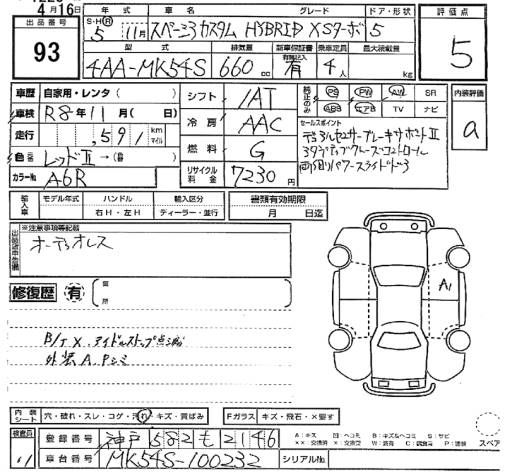 4月16日
出品番号 93
S・H・R 年式 車名 グレード ドア・形状 評価点
5年 11月 スペーシアカスタム HYBRID XSターボ 5
5
型式 排気量 新車保証書 乗車定員 最大積載量
4AA-MK54S 660 cc 有 4人 kg
車歴 自家用・レンタ( )
車検 R8年11月( 日)
走行 ,591 km マイル
色替 レッドⅡ →( 色)
カラー№ A6R
シフト IAT
冷房 AAC
燃料 G
リサイクル料金 7230円
純正のみ PS PW AW SR
ABS エアB TV ナビ
内装評価 a
セールスポイント
デュアルセンサーブレーキサポートⅡ
アダプティブクルーズコントロール
両側パワースライドドア
輸入車 モデル年式 ハンドル 輸入区分
年 右H・左H ディーラー・並行
書類有効期限
月 日迄
※注意事項等記載
オーディオレス
修復歴 有
箇所
B/Tx. アイドルストップ点滅
外装A.Pシミ
A1
内装シート 穴・破れ・スレ・コゲ・汚れ・キズ・黄ばみ
Fガラス キズ・飛石・X要す
検査員
登録番号 神戸 582 も 2146
車台番号 MK54S-100232 シリアル№
A:キズ 凹:ヘコミ B:キズ&ヘコミ S:サビ
スペア